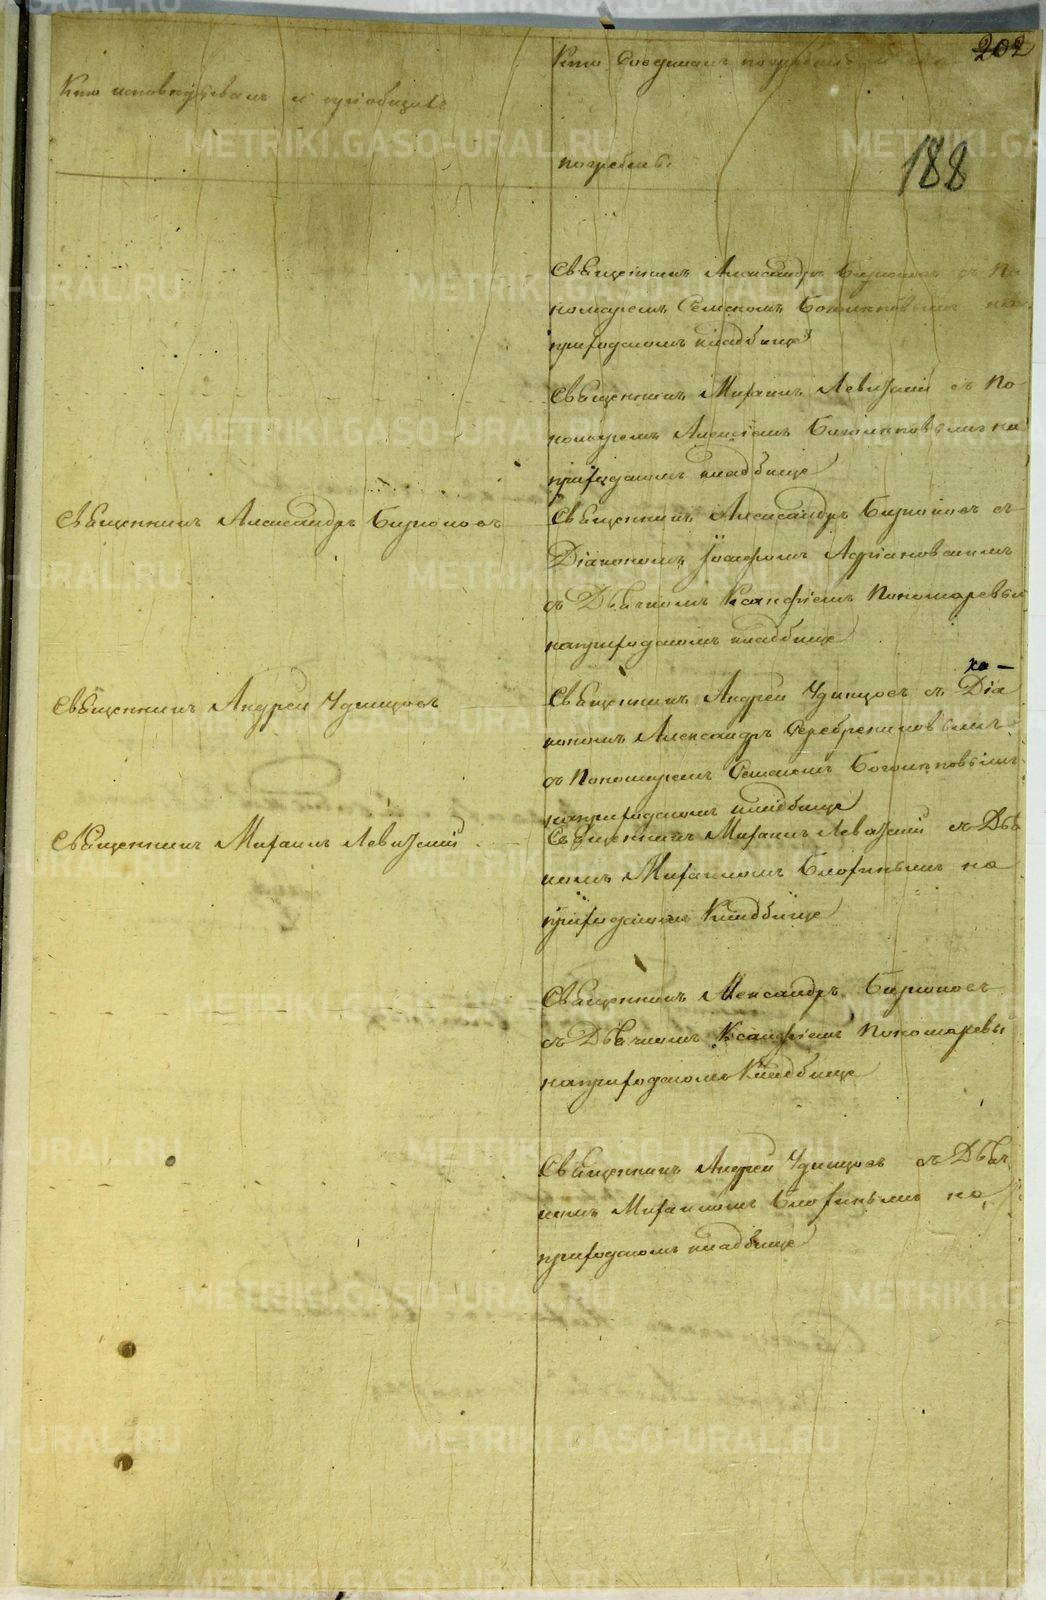 202
188
Кто исповѣдывалъ и пріобщалъ
Кто Совершалъ погребеніе и гдѣ
погребены.
Священникъ Александръ Бирюковъ съ По
номаремъ Семеномъ Боголиповымъ на
приходскомъ кладбище
Священникъ Михаилъ Левицкій съ По
номаремъ Алексіемъ на
приходскомъ кладбище
Священникъ Александръ Бирюковъ
Священникъ Александръ Бирюковъ съ
Діакономъ Іоасафомъ Адріановскимъ
съ Дьячкомъ Ксанфіемъ Пономаревым
наприходскомъ кладбище
Священникъ Андрей Удинцовъ
Священникъ Андрей Удинцовъ съ Діа
кономъ Александръ Серебрениковымъ
съ Пономаремъ Семеномъ Боголиповымъ
наприходскомъ кладбище
Священникъ Михаилъ Левицкій
Священникъ Михаилъ Левицкій съ Дья
комъ Михаиломъ на
приходскомъ Кладбище
Священникъ Александръ Бирюковъ
съ Дьячкомъ Ксанфіемъ Пономаревы
наприходскомъ Кладбище
Священникъ Андрей Удинцовъ съ Дьяч
комъ Михаиломъ на
приходскомъ кладбище
METRIKI.GASO-URAL.RU